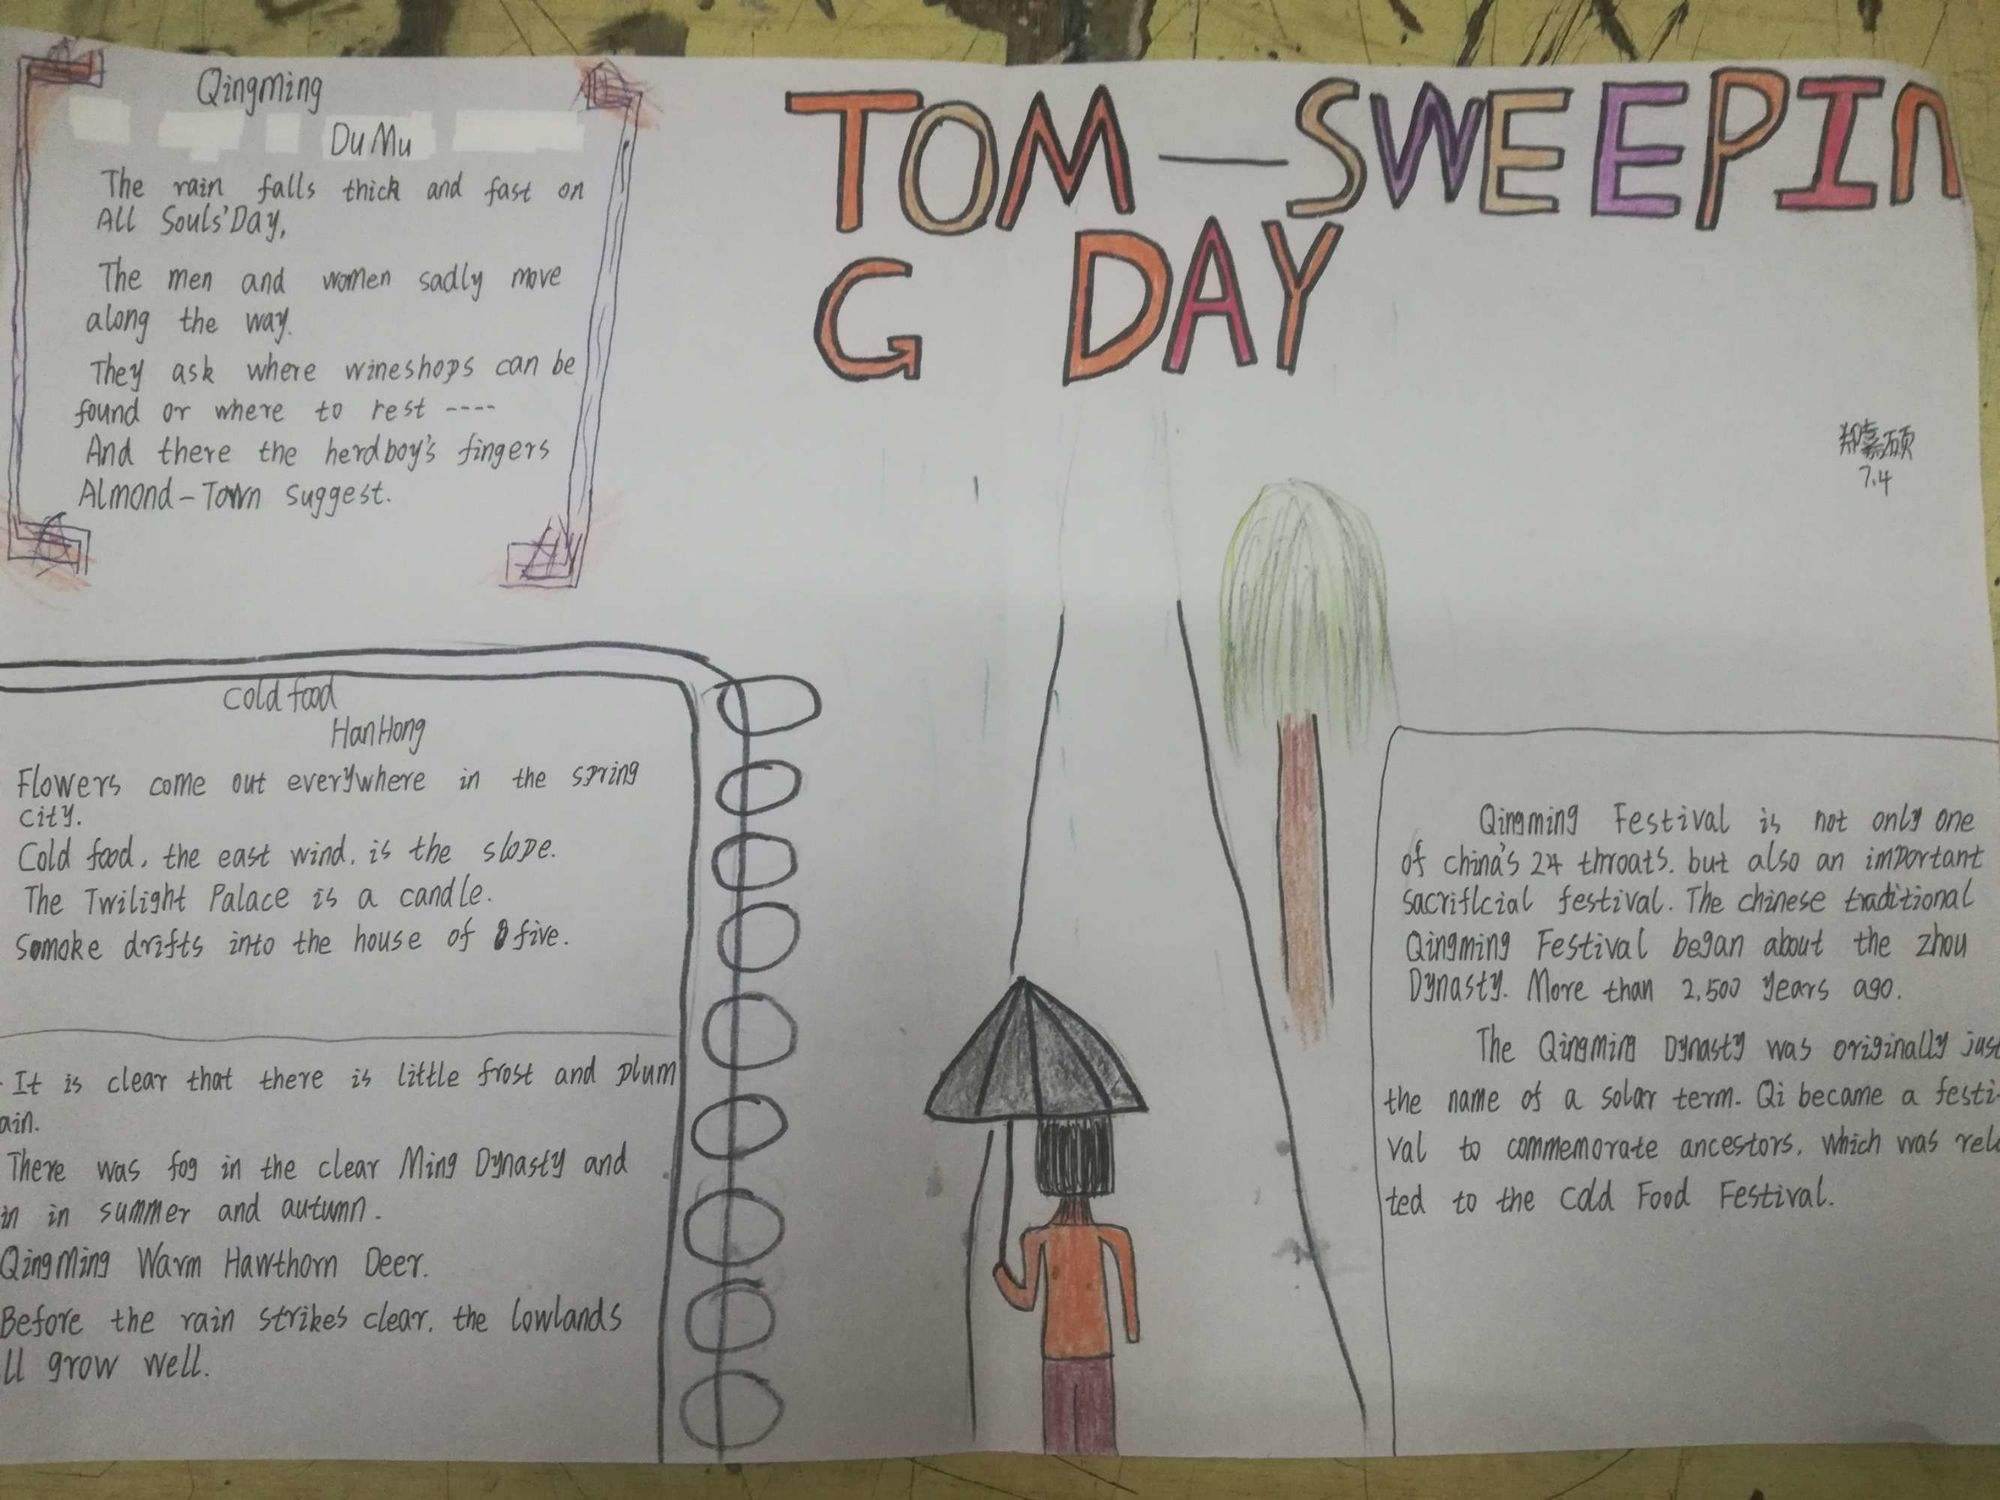 Qingming
Du Mu
The rain falls thick and fast on
All Souls' Day,
The men and women sadly move
along the way.
They ask where wineshops can be
found or where to rest ----
And there the herdboy's fingers
Almond-Town suggest.
TOM-SWEEPIN
G DAY
郑嘉硕
7.4
Cold food
Han Hong
Flowers come out everywhere in the spring
city.
Cold food, the east wind, is the slope.
The Twilight Palace is a candle.
Somoke drifts into the house of five.
It is clear that there is little frost and plum
ain.
There was fog in the clear Ming Dynasty and
in in summer and autumn.
QingMing Warm Hawthorn Deer.
Before the rain strikes clear, the lowlands
ll grow well.
Qingming Festival is not only one
of china's 24 throats, but also an important
sacriflcial festival. The chinese traditional
Qingming Festival began about the zhou
Dynasty. More than 2,500 years ago.
The QingMing Dynasty was originally just
the name of a solar term. Qi became a festi-
val to commemorate ancestors, which was rela
ted to the Cold Food Festival.